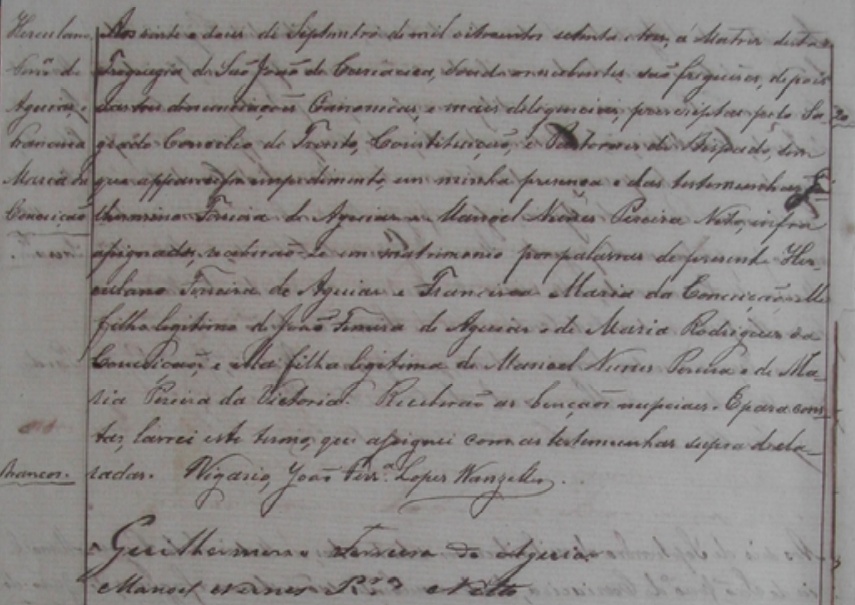 Herculano
Ferr.ª de
Aguiar, e
Francisca
Maria da
Conceição
Brancos.
Aos vinte e dous de Septembro de mil oitocentos setenta e tres, á Matriz desta
Freguezia de São João de Cariacica, donde os nubentes são freguezes, depois
das tres denunciações Canonicas, e mais deligencias, prescriptas pelo Sa-
grado Concelio de Trento, Constituição, e Pastoraes do Bispado, sem
que apparecesse impedimento, em minha presença e das testemunhas Gui-
lhermino Ferreira de Aguiar e Manoel Nunes Pereira Neto, infra
assignados, receberão-se em matrimonio por palavras de presente Her-
culano Ferreira de Aguiar e Francisca Maria da Conceição. Elle
filho legitimo de João Ferreira de Aguiar e de Maria Rodrigues da
Conceição, e ella filha legitima de Manoel Nunes Pereira e de Ma-
ria Pereira da Victoria. Receberão as bençãos nupciaes. E para cons-
tar, lavrei este termo, que assignei com as testemunhas supra decla-
radas. Vigario, João Ferr.ª Lopes Wanzeller.
Guilhermino Ferreira de Aguiar
Manoel Nunes Pr.ª Netto